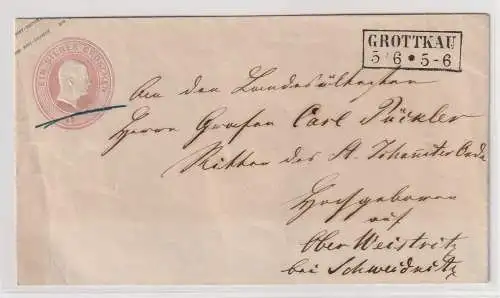 EIN SILBER GROSCHEN
GROTTKAU
5 6 * 5-6
An den Landesältesten
Herrn Grafen Carl Pückler
Ritter des St. Johanniter Orde
Hochgeboren
auf
Ober Weistritz
bei Schweidnitz